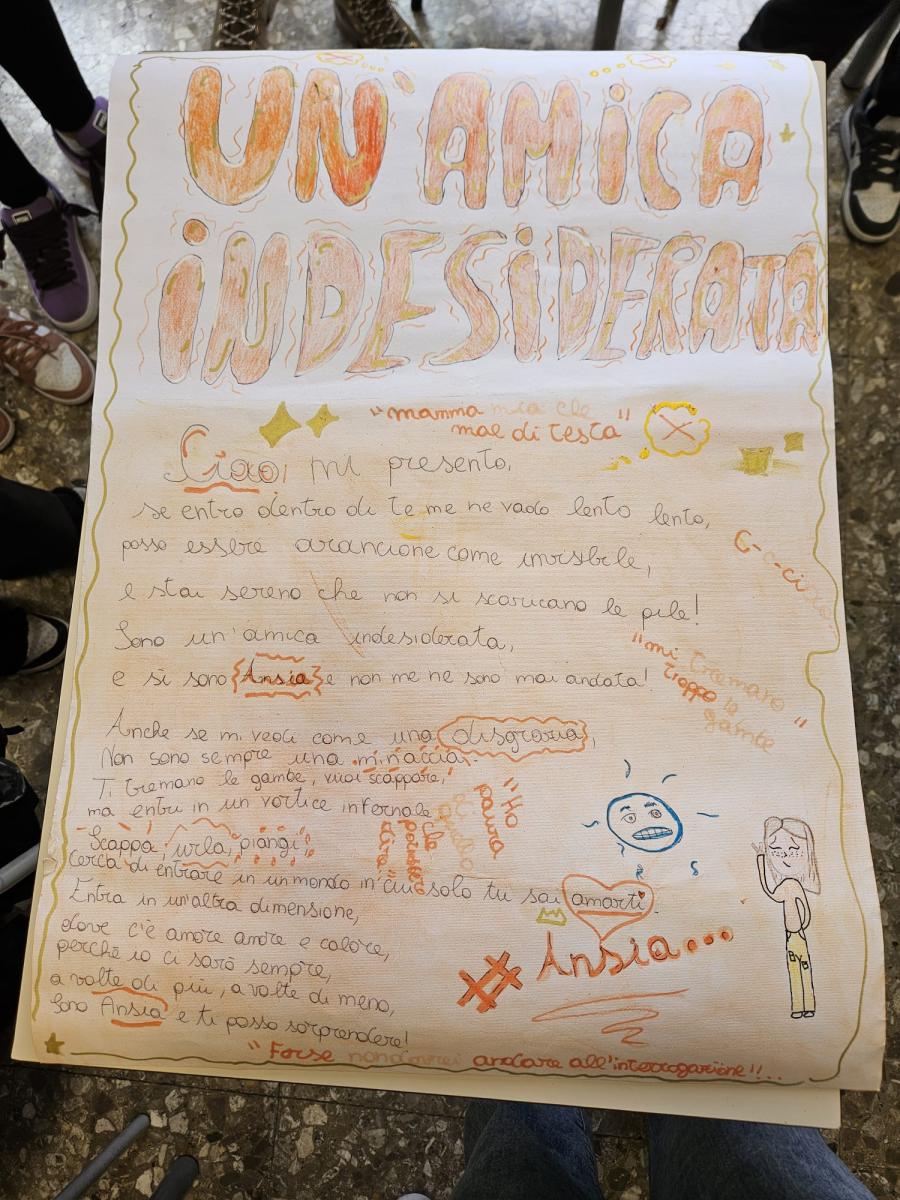 UN'AMICA
INDESIDERATA
"mamma mia che
mal di testa"
Ciao, mi presento,
se entro dentro di te me ne vado lento lento,
posso essere arancione come invisibile,
e stai sereno che non si scaricano le pile!
Sono un'amica indesiderata,
e si sono Ansia e non me ne sono mai andata!
C---ciao
"mi tremano
troppo le
gambe"
Anche se mi vedi come una disgrazia,
Non sono sempre una minaccia.
Ti tremano le gambe, vuoi scappare,
ma entri in un vortice infernale
"Ho
paura
di quello
che
potrebbe
dire"
Scappa, urla, piangi
cerca di entrare in un mondo in cui solo tu sai amarti.
Entra in un'altra dimensione,
dove c'è amore amore e calore,
perché io ci sarò sempre,
a volte di più, a volte di meno,
Sono Ansia e ti posso sorprendere!
# Ansia...
BYB
"Forse non dovrei andare all'interrogazione!!...